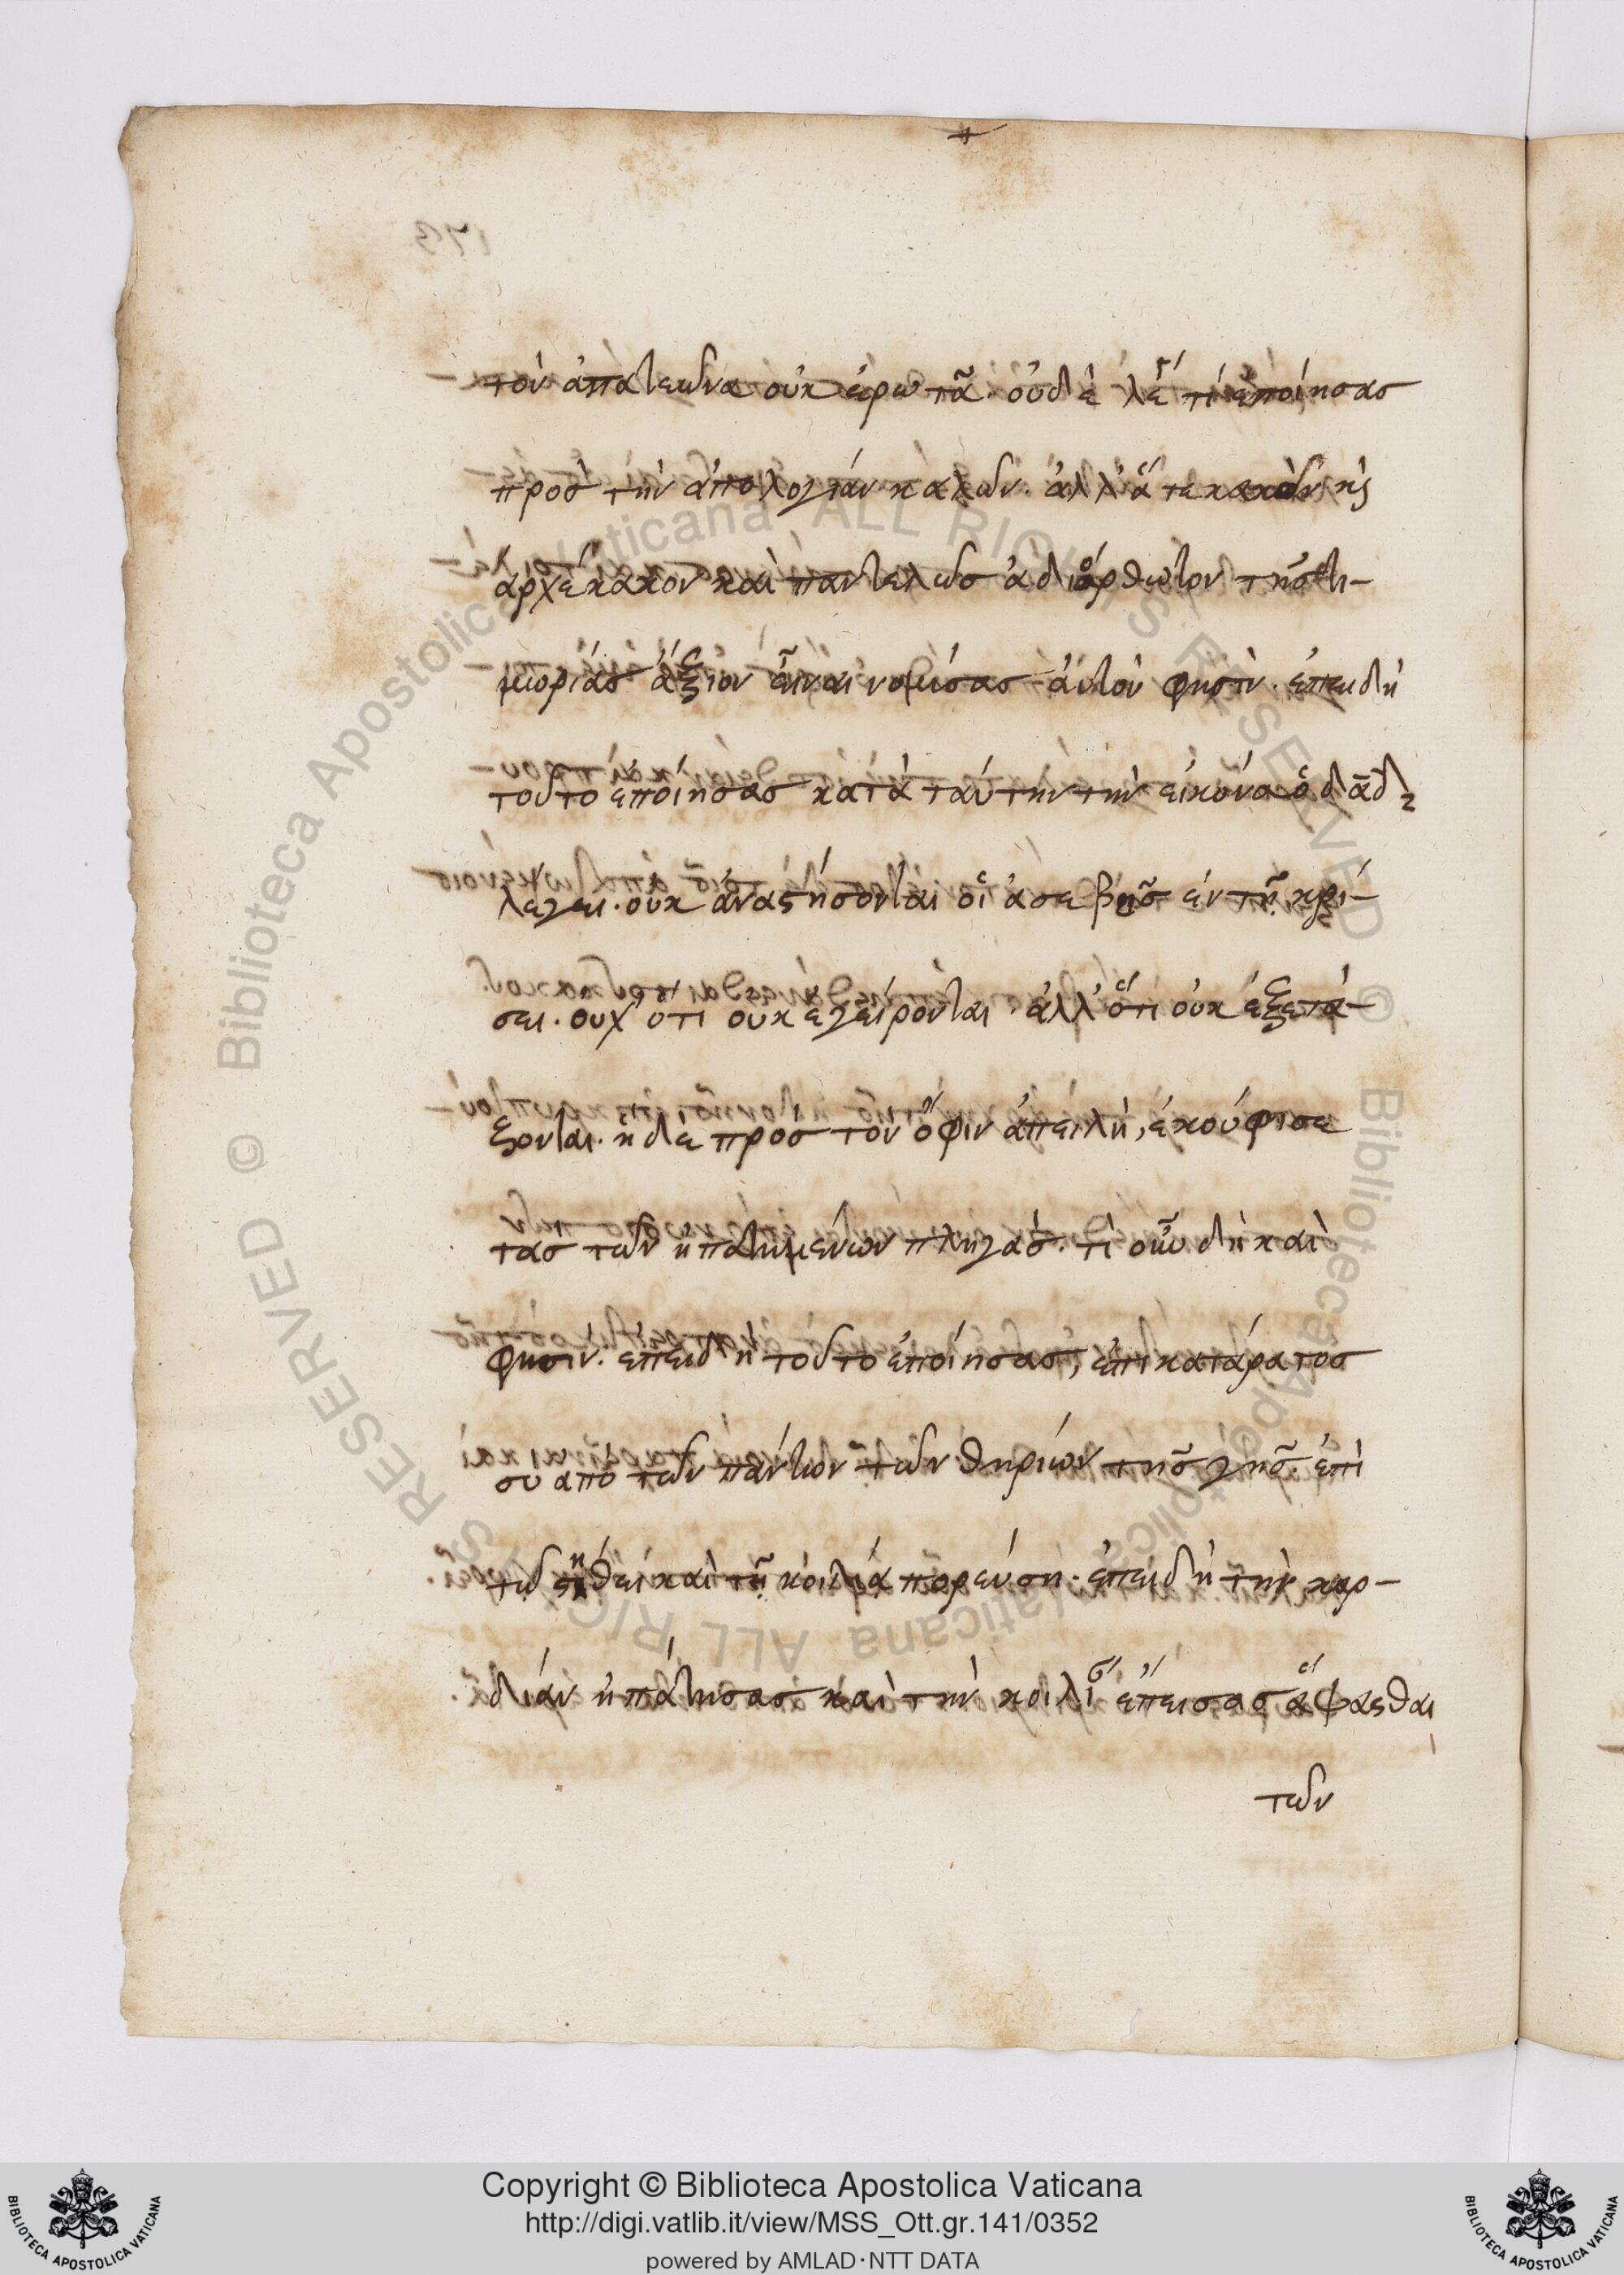 τὸν ἀπατεῶνα οὐκ ἐρωτᾶ· οὐδὲ λέγ τί ἐποίησας
πρὸς τὴν ἀπολογίαν καλῶν· ἀλλ' ἅτε κακὸν κς
ἀρχέκακον καὶ παντελῶς ἀδιόρθωτον τῆς τι-
μωρίας ἄξιον εἶναι νομίσας αὐτὸν φησὶν· ἐπειδὴ
τοῦτο ἐποίησας κατὰ ταύτην τὴν εἰκόνα ὁ δᾱδ
λέγει· οὐκ ἀναστήσονται οἱ ἀσεβεῖς ἐν τῇ κρί-
σει· οὐχ' ὅτι οὐκ ἐγείρονται· ἀλλ' ὅτι οὐκ ἐξετά-
ζονται· ἡ δὲ πρὸς τὸν ὄφιν ἀπειλὴ, ἐκούφισε
τὰς τῶν ἠπατημένων πληγάς· τί οὖν δὴ καὶ
φησιν· ἐπειδὴ τοῦτο ἐποίησας, ἐπικατάρατος
συ ἀπὸ τῶν πάντων τῶν θηρίων τῆς γῆς· ἐπὶ
τῷ στήθει καὶ τῇ κοιλίᾳ πορεύσῃ· ἐπειδὴ τὴν καρ-
δίαν ἠπάτησας καὶ τὴν κοιλί ἔπεισας ἅψασθαι
τῶν
Copyright © Biblioteca Apostolica Vaticana
http://digi.vatlib.it/view/MSS_Ott.gr.141/0352
powered by AMLAD·NTT DATA
© Biblioteca Apostolica Vaticana ALL RIGHTS RESERVED
© Biblioteca Apostolica Vaticana ALL RIGHTS RESERVED
BIBLIOTECA APOSTOLICA VATICANA
BIBLIOTECA APOSTOLICA VATICANA